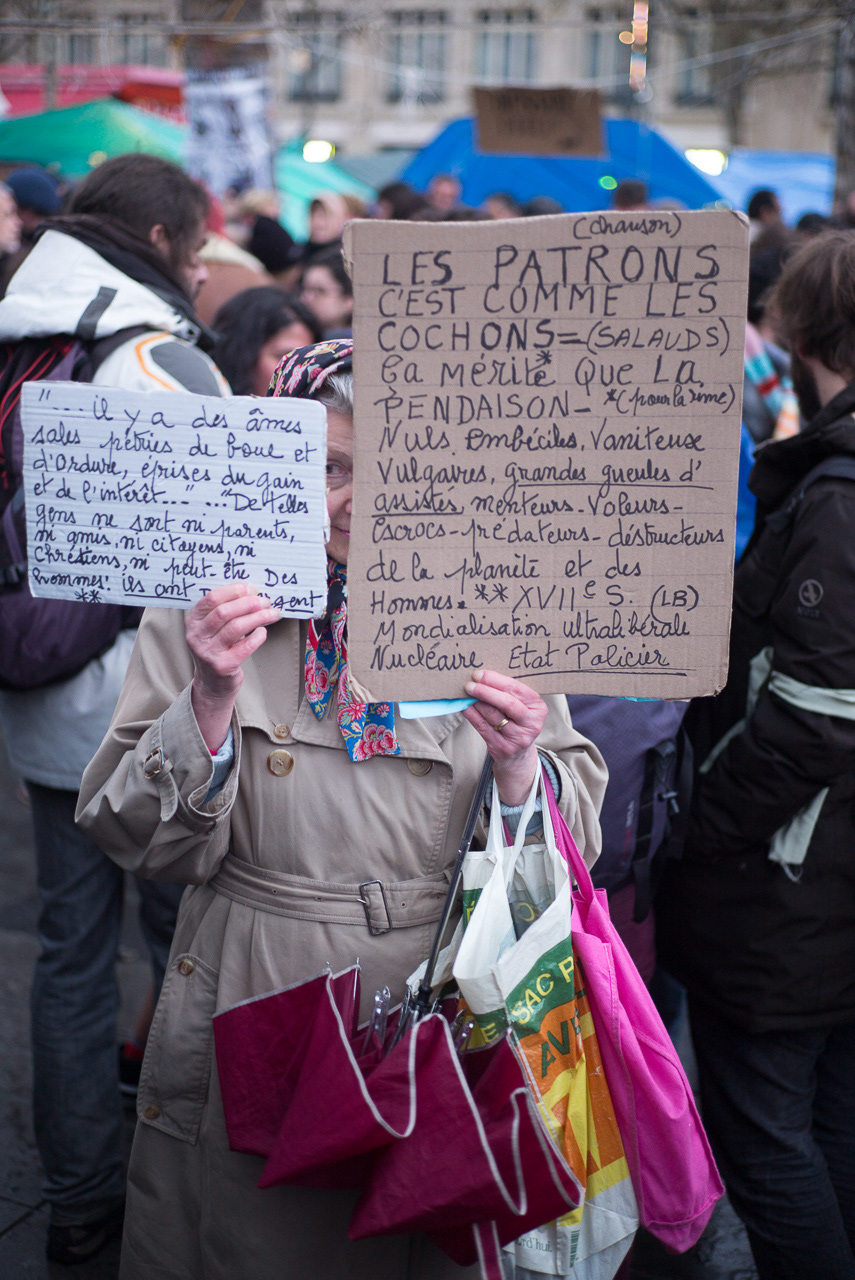 " ... il y a des âmes
sales pétries de boue et
d'ordure, éprises du gain
et de l'intérêt..." ..."De telles
gens ne sont ni parents,
ni amis, ni citoyens, ni
chrétiens, ni peut-être Des
hommes. ils ont
**
(chanson)
LES PATRONS
C'EST COMME LES
COCHONS=(SALAUDS)
Ça mérite* QUE LA
PENDAISON- *(pour la rime)
Nuls Embéciles, Vaniteuse
Vulgaires, grandes gueules d'
assistés menteurs-Voleurs-
escrocs-prédateurs-déstructeurs
de la planète et des
Hommes. ** XVIIe S. (LB)
Mondialisation ultralibérale
Nucléaire Etat Policier
SAC